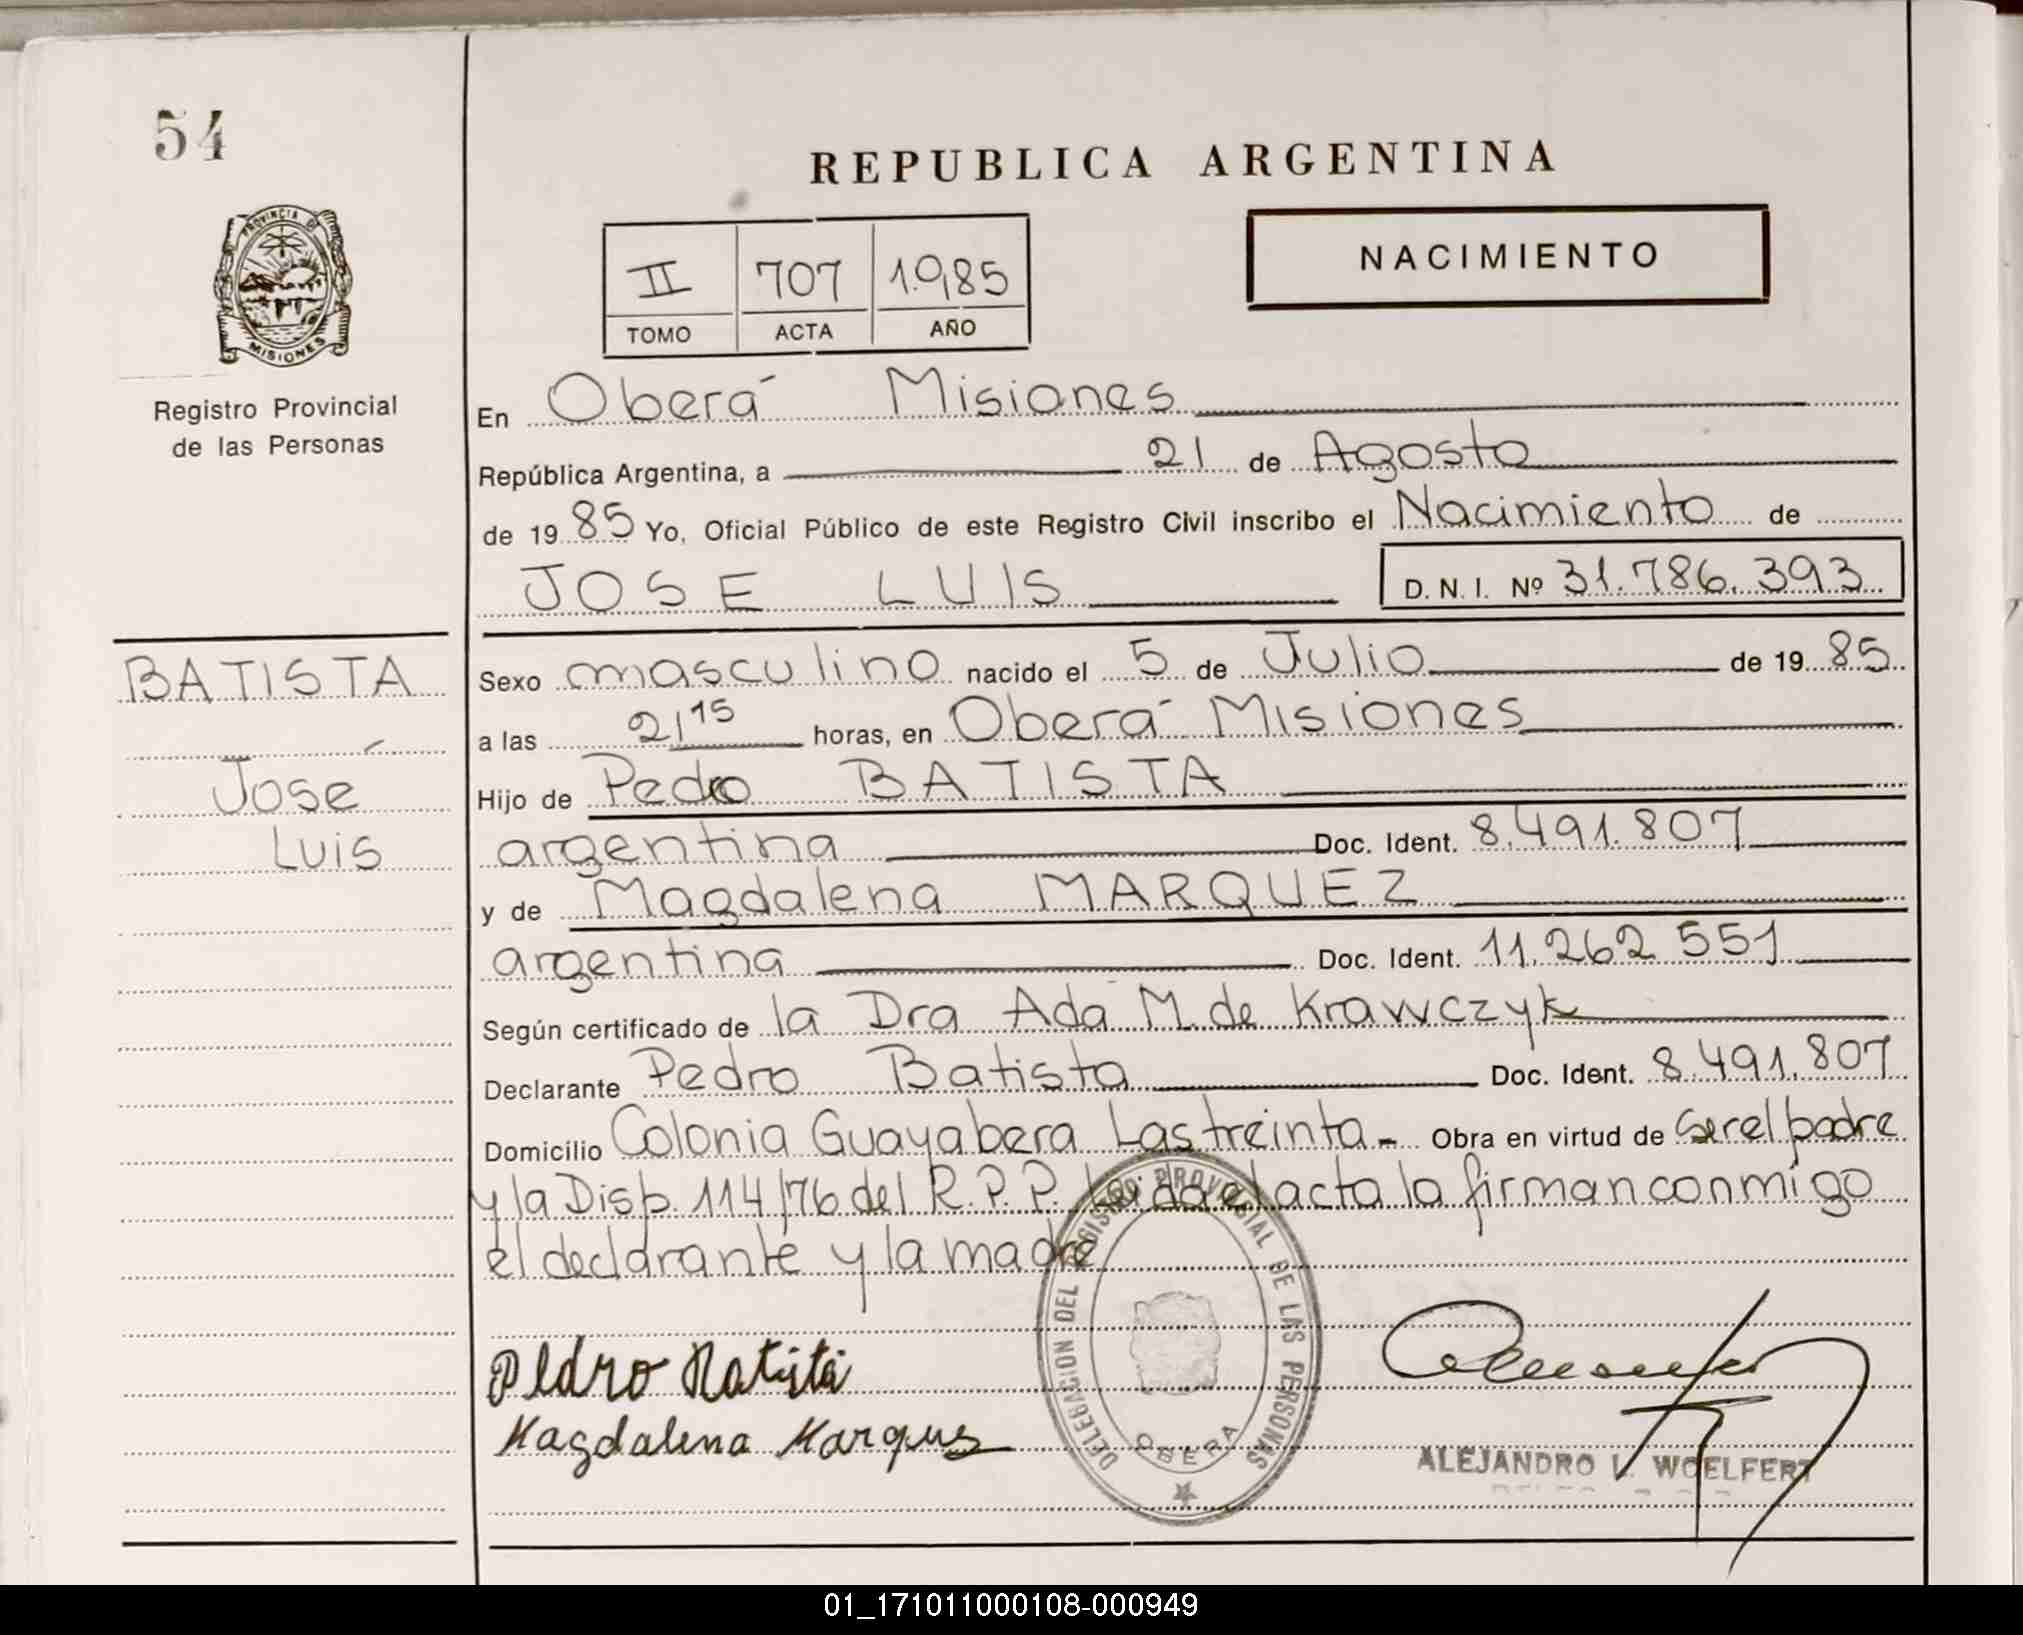 54
REPUBLICA ARGENTINA
II 707 1.985
TOMO ACTA AÑO
NACIMIENTO
PROVINCIA DE
MISIONES
Registro Provincial
de las Personas
BATISTA
José
Luis
En Oberá Misiones
República Argentina, a 21 de Agosto
de 19 85 Yo, Oficial Público de este Registro Civil inscribo el Nacimiento de
JOSE LUIS D. N. I. Nº 31.786.393
Sexo masculino nacido el 5 de Julio de 19 85
a las 21 15 horas, en Oberá Misiones
Hijo de Pedro BATISTA
argentina Doc. Ident. 8.491.807
y de Magdalena MARQUEZ
argentina Doc. Ident. 11.262 551
Según certificado de la Dra Ada M. de Krawczyk
Declarante Pedro Batista Doc. Ident. 8.491.807
Domicilio Colonia Guayabera Las treinta - Obra en virtud de ser el padre
y la Disp. 114/76 del R.P.P. Leida el acta la firman conmigo
el declarante y la madre
DELEGACION DEL REGISTRO PROVINCIAL DE LAS PERSONAS
OBERA
Pedro Batista
Magdalena Marques
ALEJANDRO L. WOELFERT
01_171011000108-000949